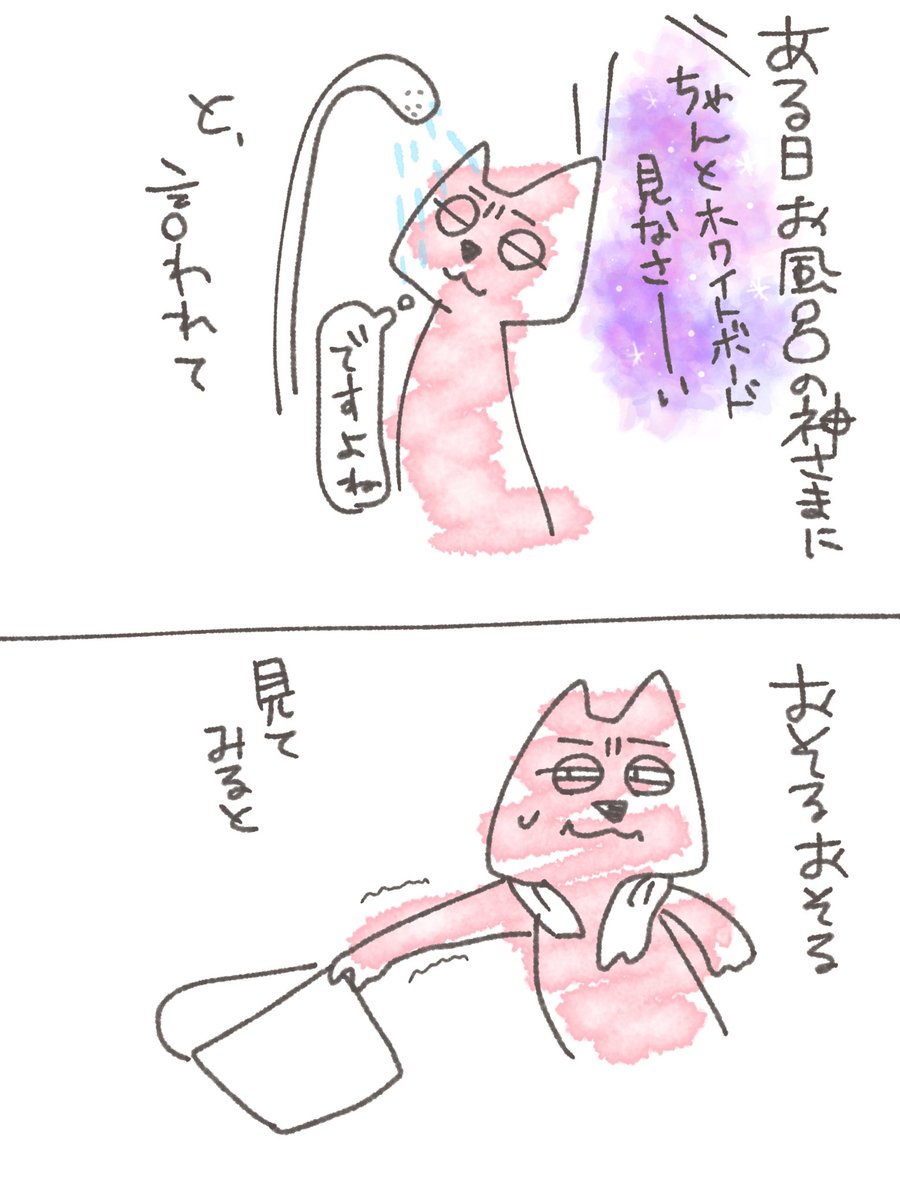 ある日お風呂の神さまに
ちゃんとホワイトボード
見なさーーい
ですよね
と、言われて
おそるおそる
見て
みると